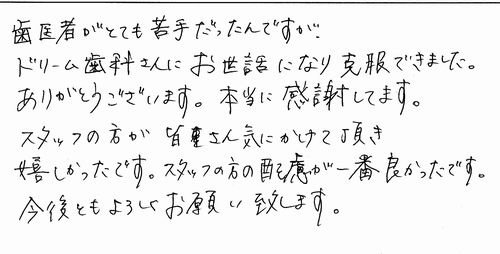 歯医者がとても苦手だったんですが、
ドリーム歯科さんにお世話になり克服できました。
ありがとうございます。本当に感謝してます。
スタッフの方が皆さん気にかけて頂き
嬉しかったです。スタッフの方の配慮が一番良かったです。
今後ともよろしくお願い致します。